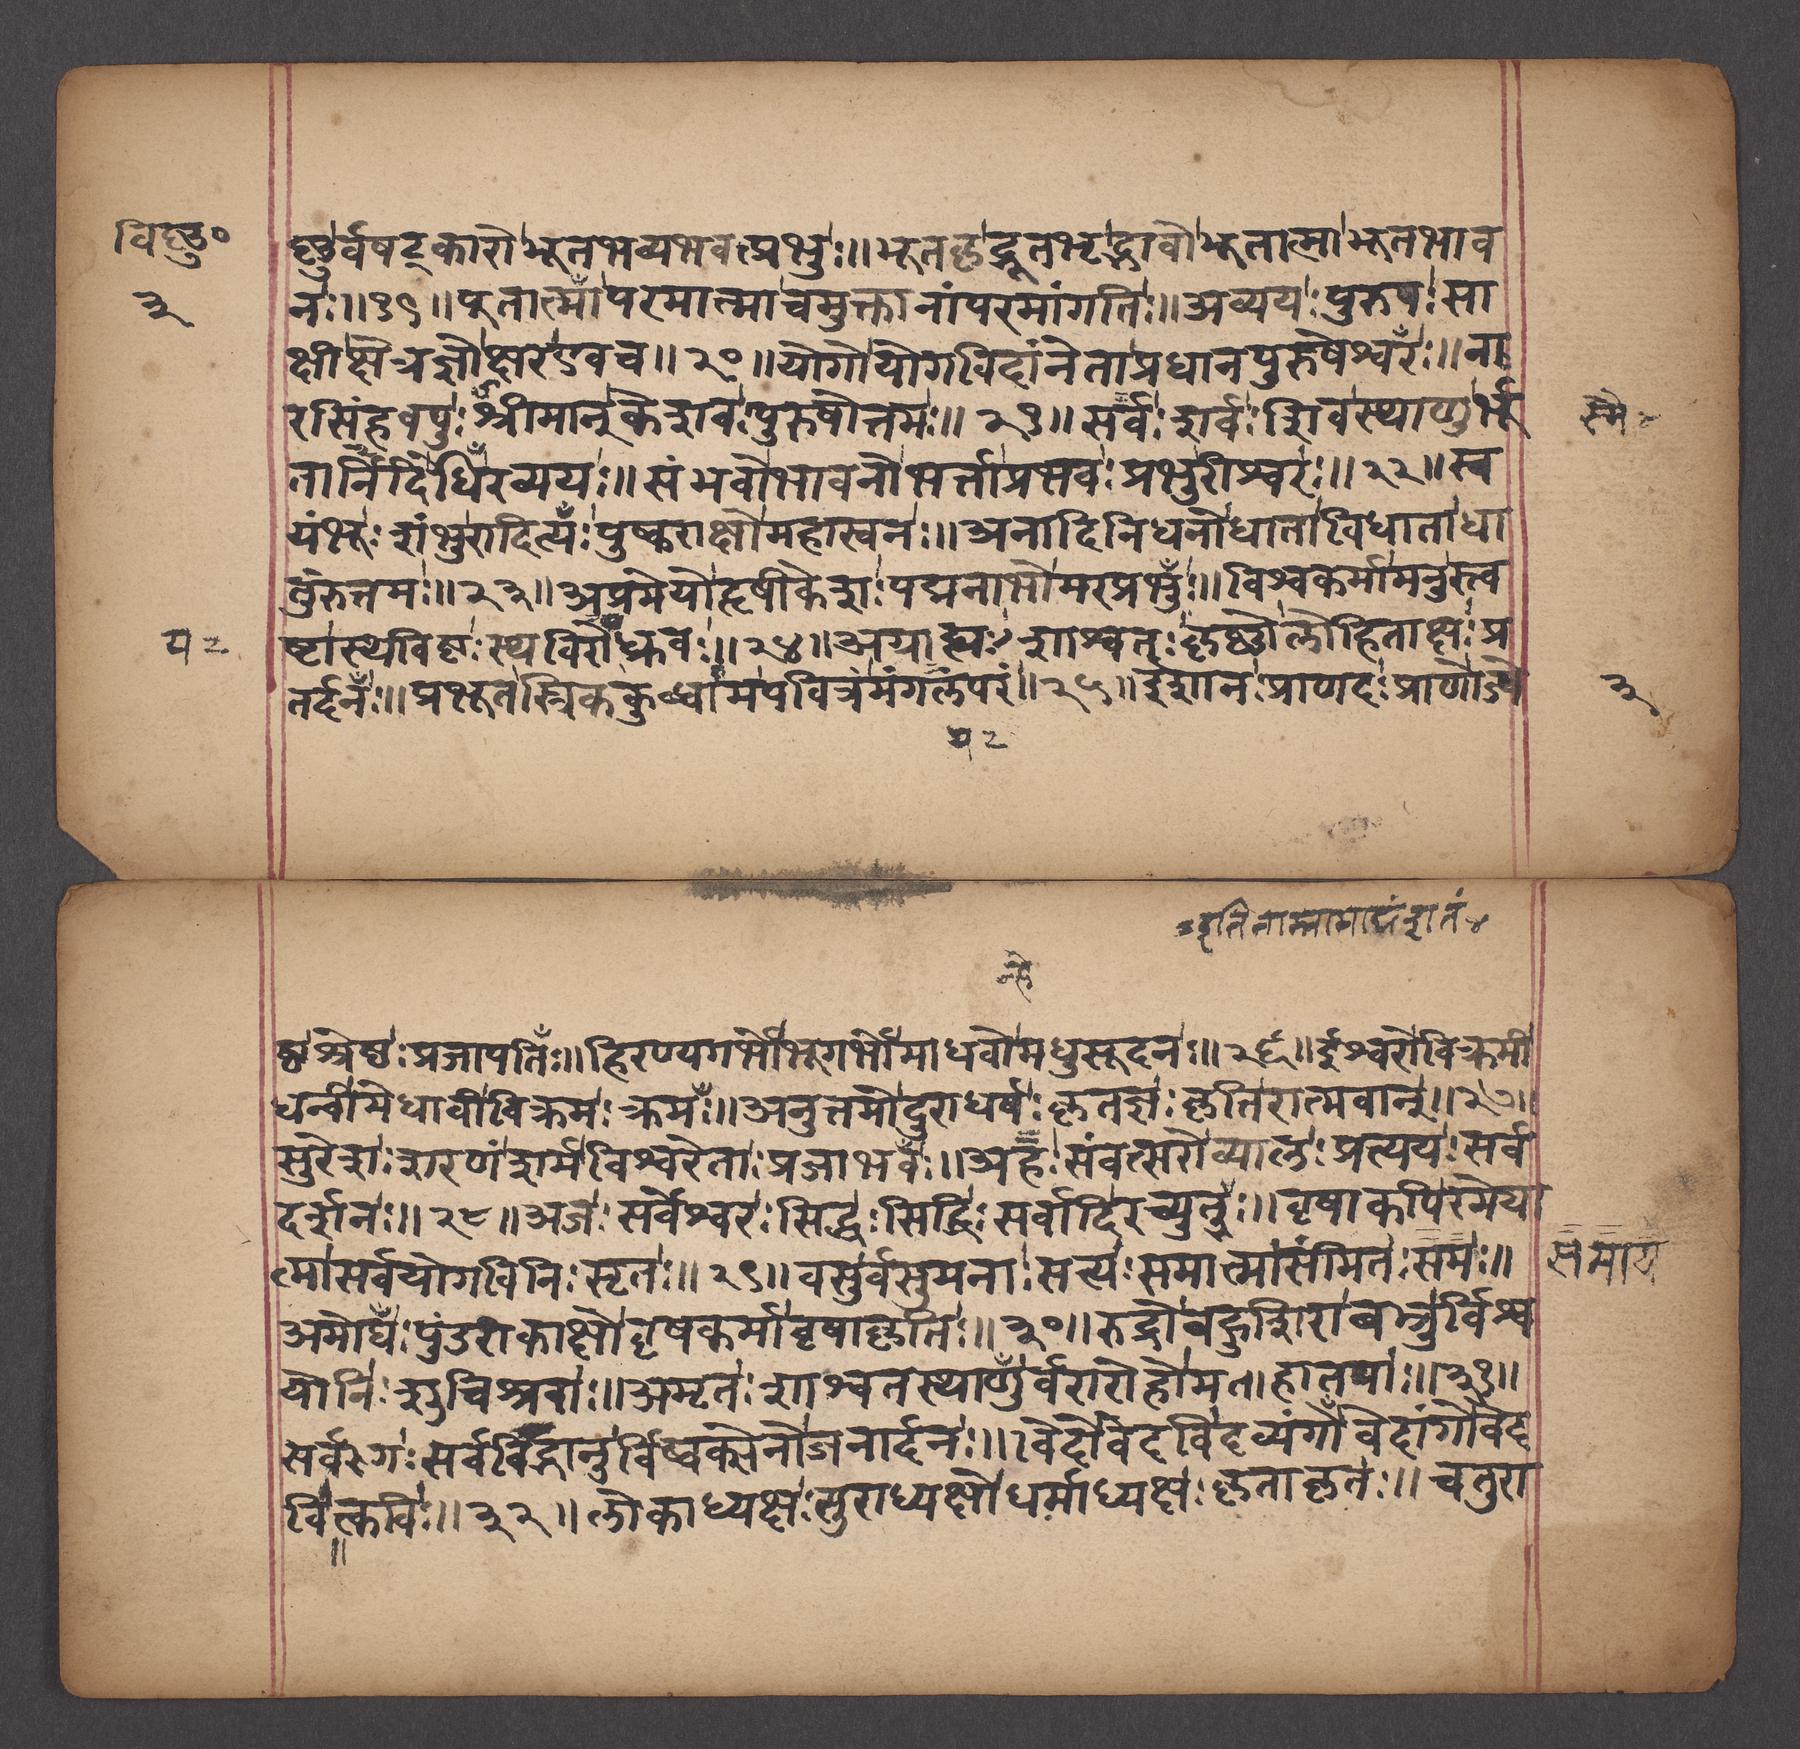 विष्णु०
३
ष्णुर्वषट्कारोभूतभव्यभवत्प्रभुः॥भूतकृद्भूतभृद्भावोभूतात्माभूतभाव
नः॥१९॥पूतात्मापरमात्माचमुक्तानांपरमांगतिः॥अव्ययःपुरुषःसा
क्षीक्षेत्रज्ञोक्षरएवच॥२०॥योगोयोगविदांनेताप्रधानपुरुषेश्वरः॥ना
रसिंहवपुःश्रीमान्केशवःपुरुषोत्तमः॥२१॥सर्वःशर्वःशिवस्थाणुर्भू
तादिर्निधिरव्ययः॥संभवोभावनोभर्त्ताप्रभवःप्रभुरीश्वरः॥२२॥स्व
यंभूःशंभुरादित्यःपुष्कराक्षोमहास्वनः॥अनादिनिधनोधाताविधाताधा
तुरुत्तमः॥२३॥अप्रमेयोहृषीकेशःपद्मनाभोमरप्रभुः॥विश्वकर्मामनुस्त्व
ष्टास्थविष्ठःस्थविरोध्रुवः॥२४॥अग्राह्यःशाश्वतःकृष्णोलोहिताक्षःप्र
तर्दनः॥प्रभूतस्त्रिककुब्धामपवित्रंमंगलंपरं॥२५॥ईशानःप्राणदःप्राणोज्ये
३
ष्ठःश्रेष्ठःप्रजापतिः॥हिरण्यगर्भोभूगर्भोमाधवोमधुसूदनः॥२६॥ईश्वरोविक्रमी
धन्वीमेधावीविक्रमःक्रमः॥अनुत्तमोदुराधर्षःकृतज्ञःकृतिरात्मवान्॥२७॥
सुरेशःशरणंशर्मविश्वरेताःप्रजाभवः॥अहःसंवत्सरोव्यालःप्रत्ययःसर्व
दर्शनः॥२८॥अजःसर्वेश्वरःसिद्धःसिद्धिःसर्वादिरच्युतः॥वृषाकपिरमेया
त्मासर्वयोगविनिःसृतः॥२९॥वसुर्वसुमनाःसत्यःसमात्मासंमितःसमः॥
अमोघःपुंडरीकाक्षोवृषकर्मावृषाकृतिः॥३०॥रुद्रोबहुशिराबभ्रुर्विश्व
योनिःशुचिश्रवाः॥अमृतःशाश्वतस्थाणुर्वरारोहोमहातपाः॥३१॥
सर्वगःसर्वविद्भानुर्विष्वक्सेनोजनार्दनः॥वेदोवेदविदव्यंगोवेदांगोवेद
वित्कविः॥३२॥लोकाध्यक्षःसुराध्यक्षोधर्माध्यक्षःकृताकृतः॥चतुरा